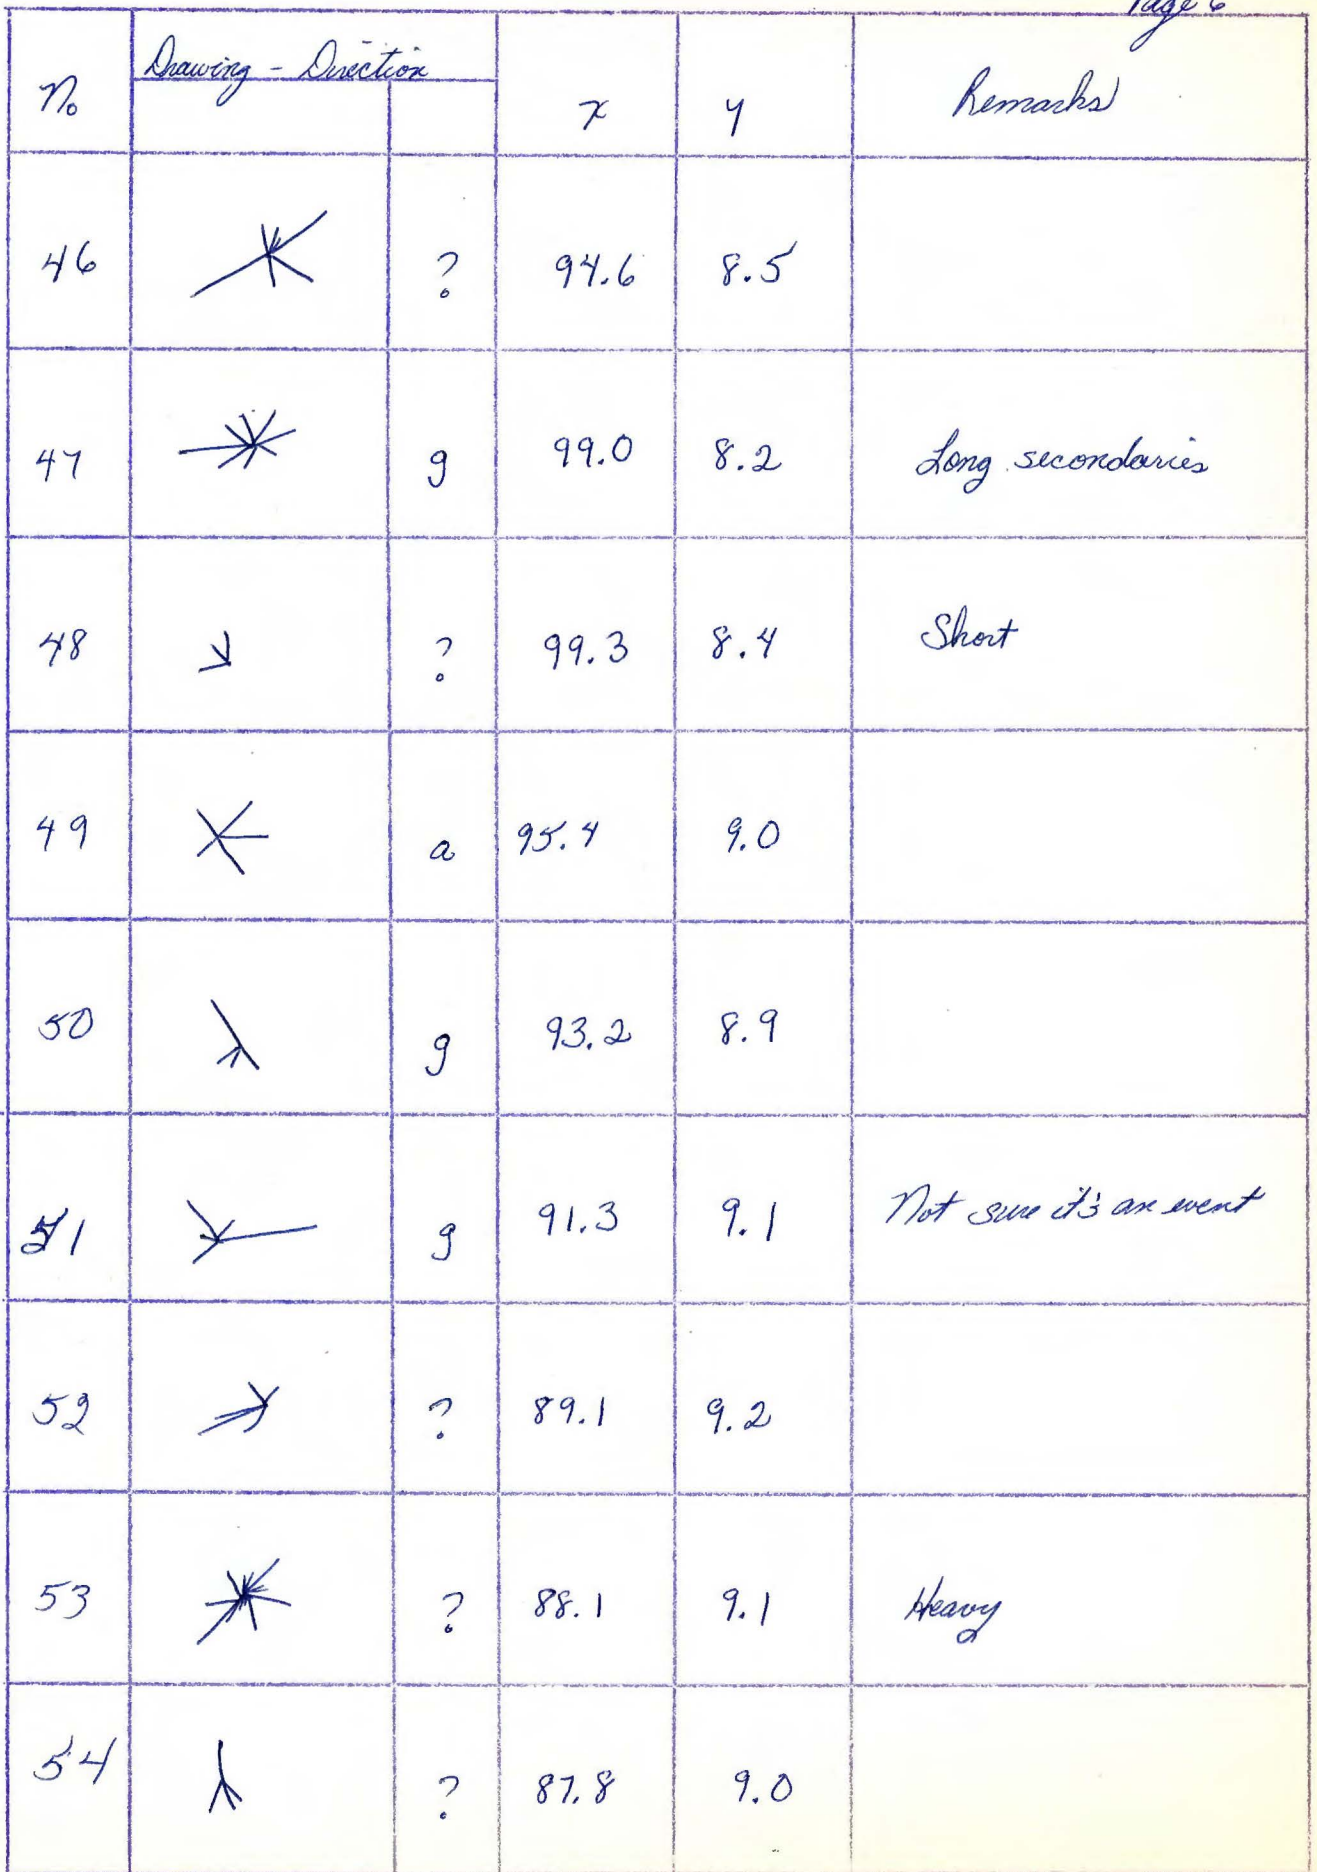 Page 6
No Drawing - Direction x y Remarks
46 ? 94.6 8.5
47 g 99.0 8.2 Long secondaries
48 ? 99.3 8.4 Short
49 a 95.4 9.0
50 g 93.2 8.9
51 g 91.3 9.1 Not sure it's an event
52 ? 89.1 9.2
53 ? 88.1 9.1 Heavy
54 ? 87.8 9.0